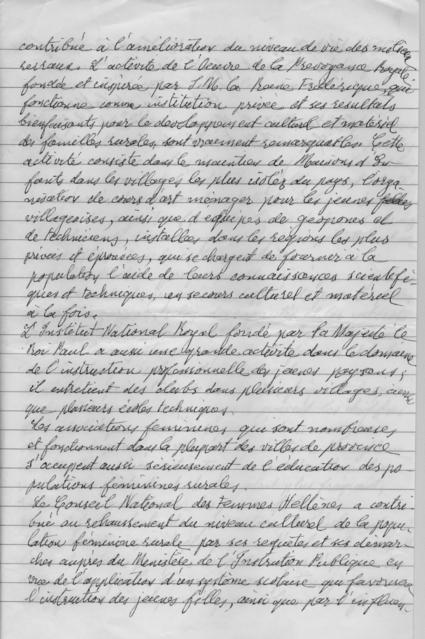 contribué à l'amélioration du niveau de vie des milieux
ruraux. L'activité de l'Oeuvre de la Prévoyance Royale
fondée et inspirée par S.M. la Reine Frédérique, qui
fonctionne comme institution privée et ses résultats
bienfaisants pour le développement culturel et matériel
des familles rurales, sont vraiment remarquables. Cette
activité consiste dans le maintien de Maisons d'En-
fants dans les villages les plus isolés du pays, l'orga-
nisation de cours d'art ménager pour les jeunes filles
villageoises, ainsi que d'équipes de géopones et
de techniciens, installées dans les régions les plus
privées et éprouvées, qui se chargent de fournir à la
population l'aide de leurs connaissances scientifi-
ques et techniques, un secours culturel et matériel
à la fois.
L'Institut National Royal fondé par Sa Majesté le
Roi Paul a aussi une grande activité dans le domaine
de l'instruction professionnelle des jeunes paysans;
il entretient des clubs dans plusieurs villages, ainsi
que plusieurs écoles techniques.
Les associations féminines qui sont nombreuses
et fonctionnent dans la plupart des villes de province
s'occupent aussi sérieusement de l'éducation des po-
pulations féminines rurales.
Le Conseil National des Femmes Hellènes a contri-
bué au rehaussement du niveau culturel de la popu-
lation féminine rurale par ses requêtes et ses démar-
ches auprès du Ministère de l'Instruction Publique en
vue de l'application d'un système scolaire qui favorise
l'instruction des jeunes filles, ainsi que par l'influen-